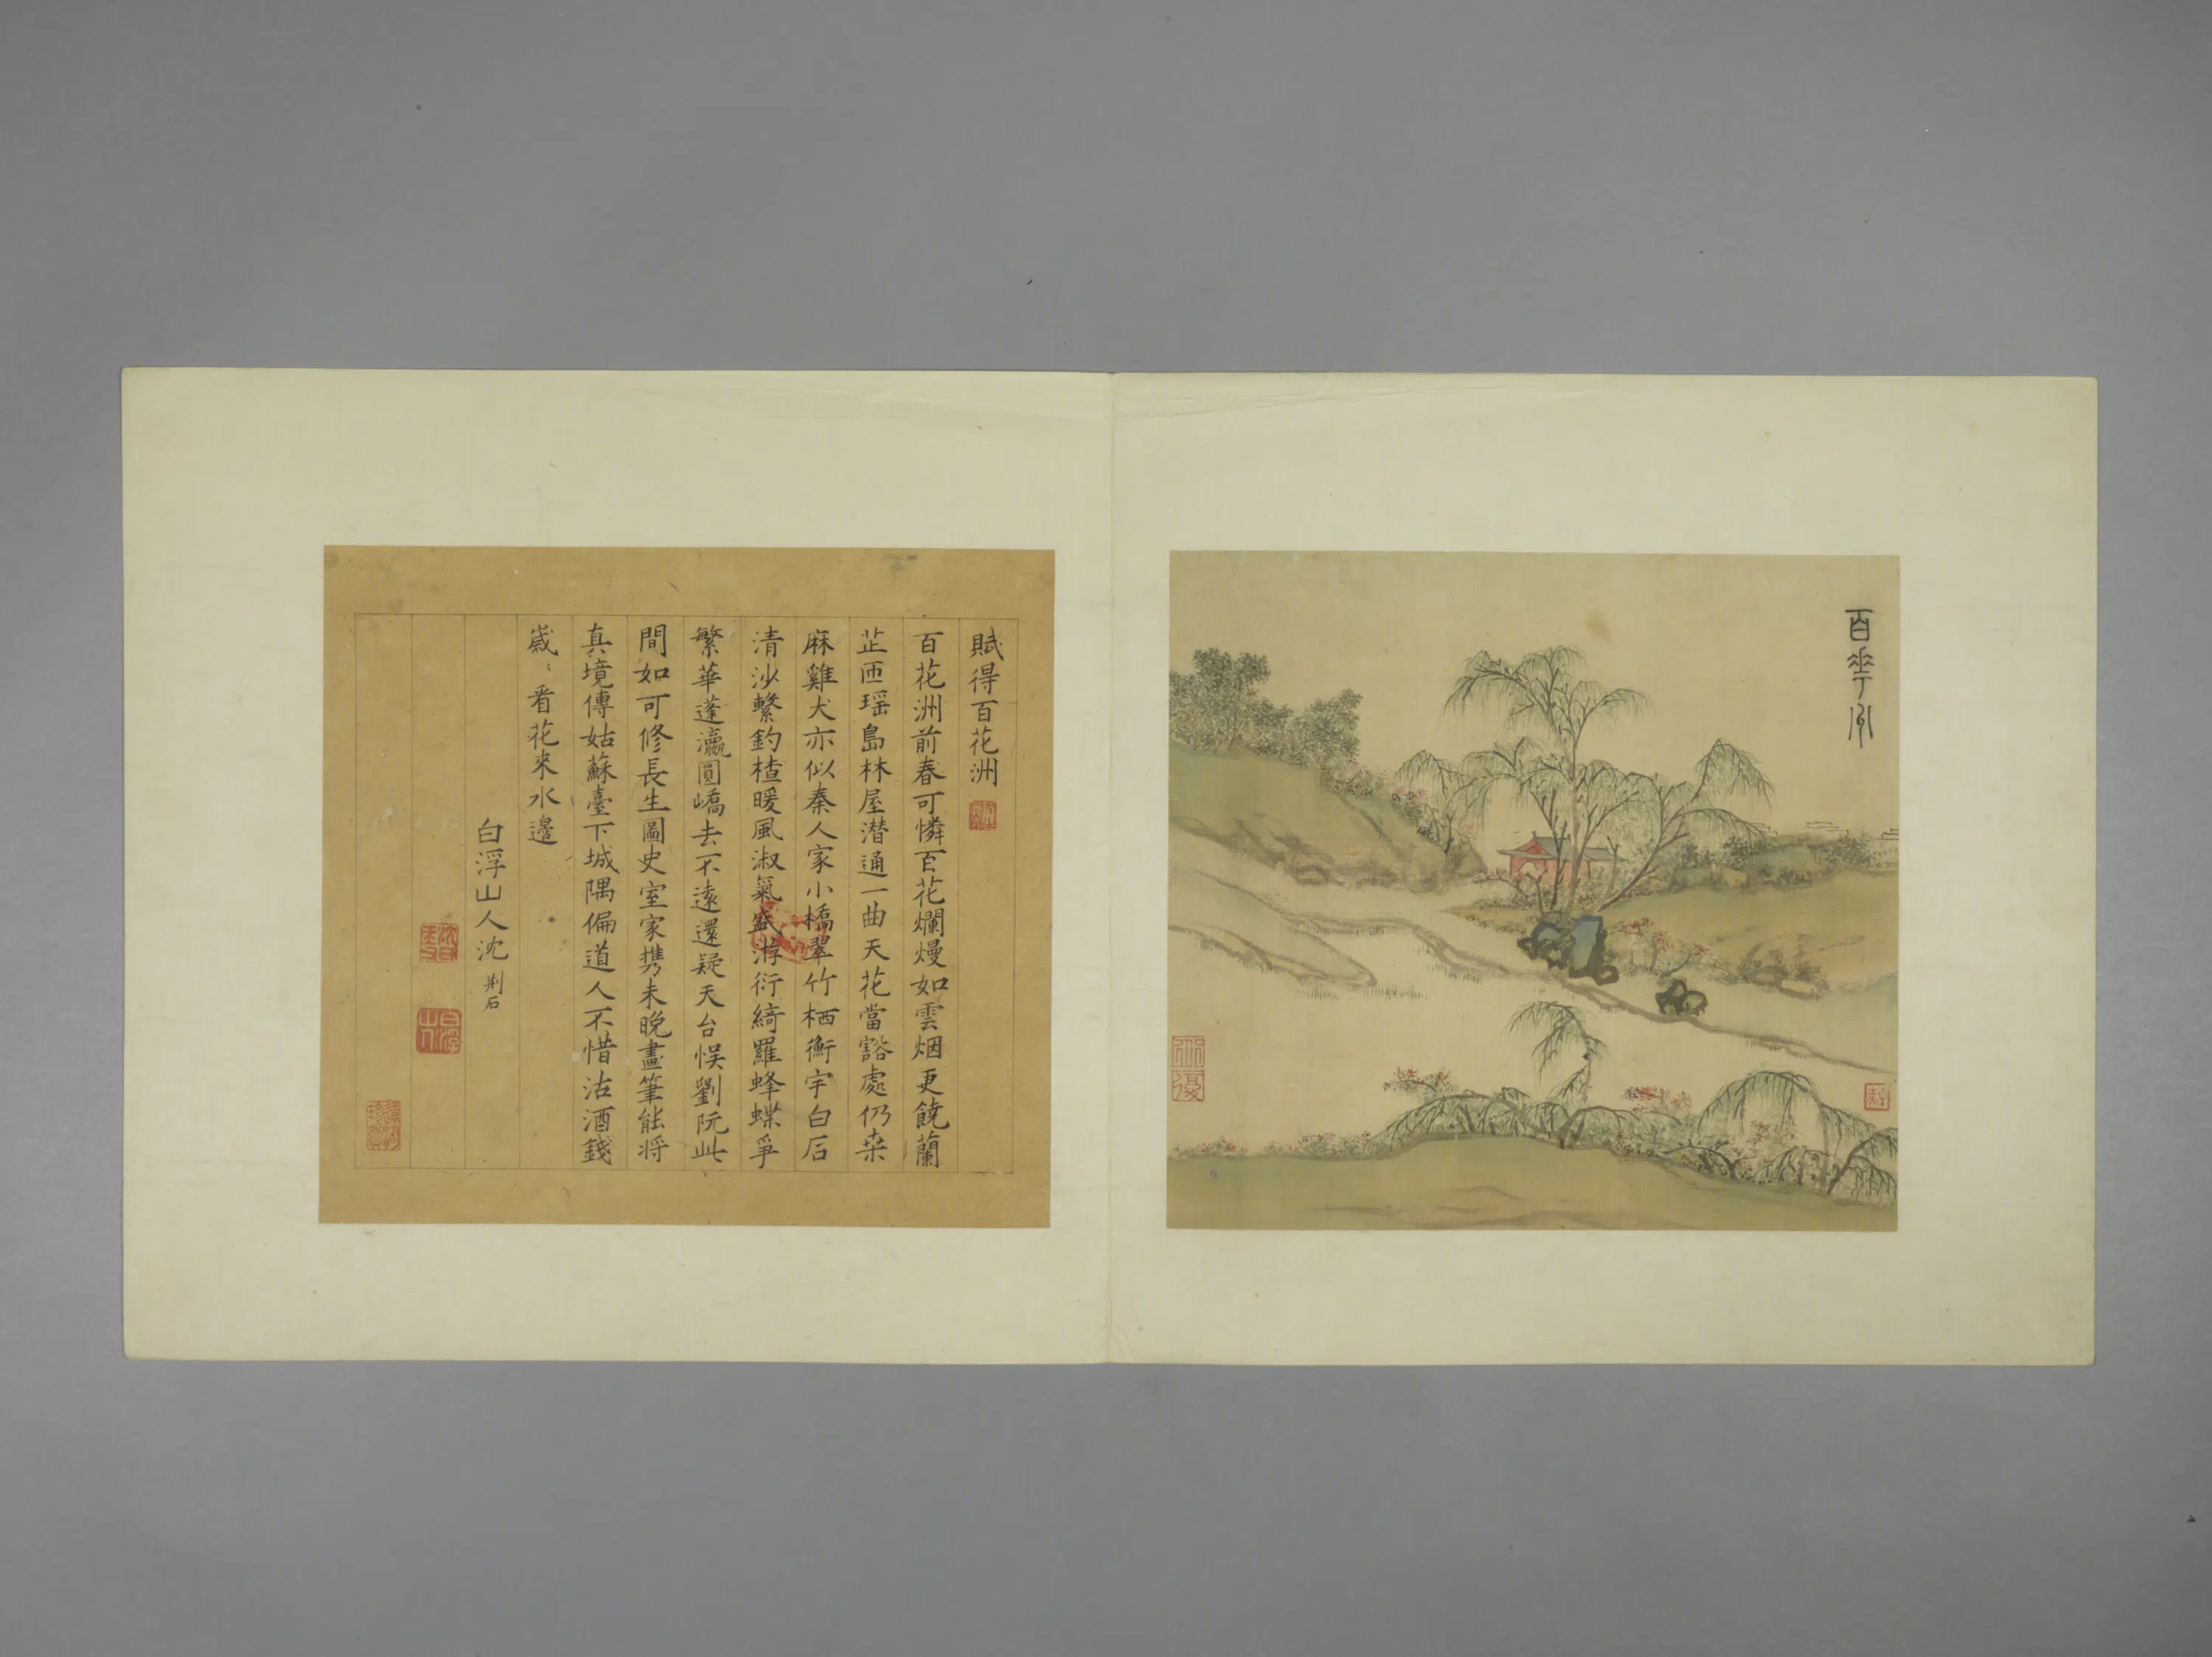 百華洲
賦得百花洲
百花洲前春可憐百花爛熳如雲烟更饒蘭
芷匝瑶島林屋潜通一曲天花當豁處仍桒
麻雞犬亦似秦人家小橋翠竹栖衡宇白石
清沙繫釣楂暖風淑氣盛游衍綺羅蜂蝶爭
繁華蓬瀛圓嶠去不遠還疑天台悞劉阮此
間如可修長生圖史室家携未晚畫筆能将
真境傳姑蘇臺下城隅偏道人不惜沽酒錢
歲〻看花來水邊
白浮山人沈荆石
白浮山人